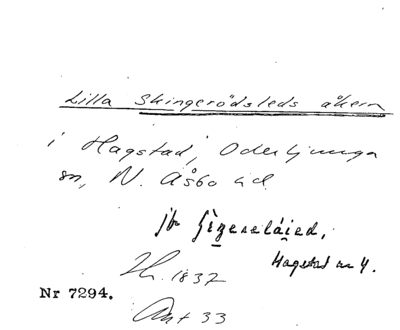 Lilla Skingerödsleds åkern
i Hagstad, Oderljunga
sn, N. Åsbo hd.
jfr
Hagstad nr 4.
Lh. 1837
Nr 7294.
Ant 33